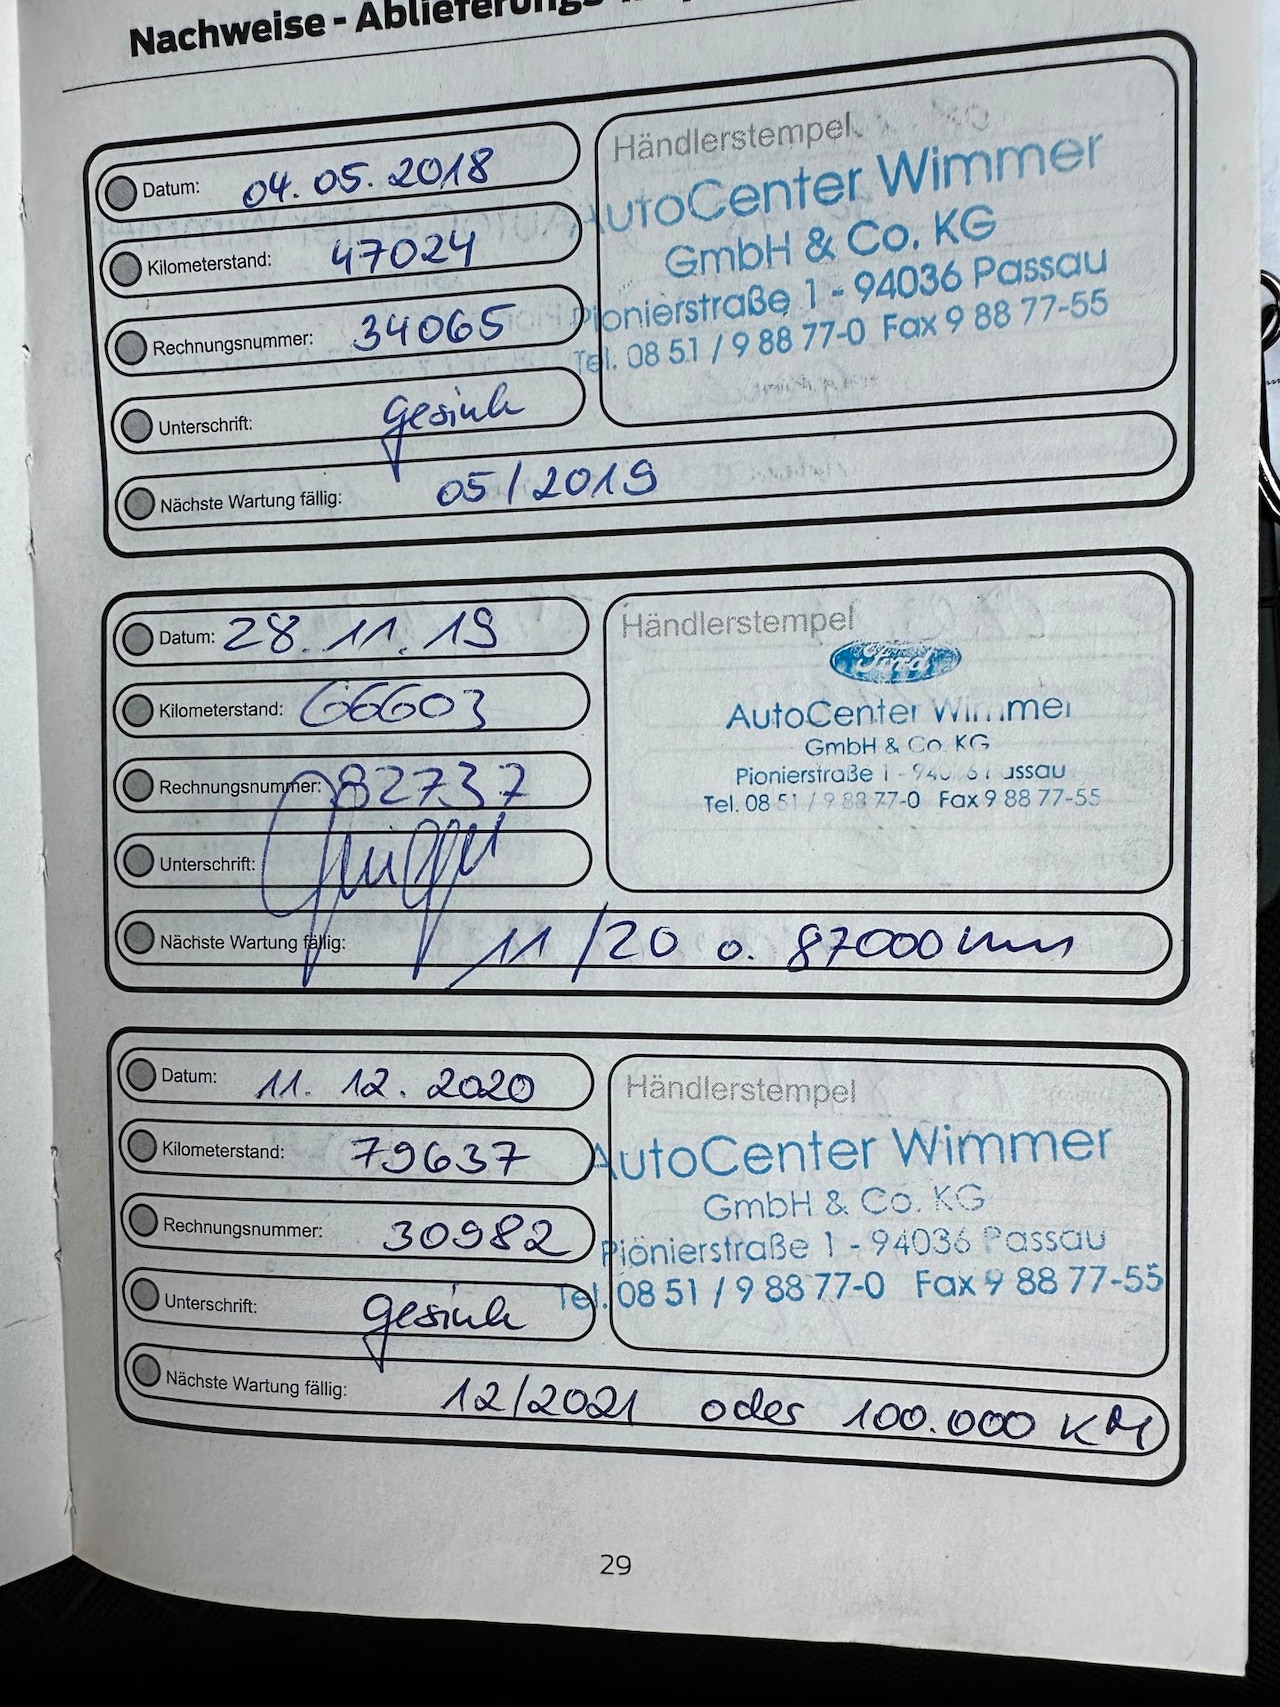 Nachweise - Ablieferungs-
Datum: 04.05.2018
Kilometerstand: 47024
Rechnungsnummer: 34065
Unterschrift:
Nächste Wartung fällig: 05/2019
Händlerstempel
AutoCenter Wimmer
GmbH & Co. KG
Pionierstraße 1 - 94036 Passau
Tel. 08 51 / 9 88 77-0 Fax 9 88 77-55
Datum: 28.11.19
Kilometerstand: 66603
Rechnungsnummer: 82737
Unterschrift:
Nächste Wartung fällig: 11/20 o. 87000 km
Händlerstempel
Ford
AutoCenter Wimmer
GmbH & Co. KG
Pionierstraße 1 - 94036 Passau
Tel. 08 51 / 9 88 77-0 Fax 9 88 77-55
Datum: 11.12.2020
Kilometerstand: 79637
Rechnungsnummer: 30982
Unterschrift:
Nächste Wartung fällig: 12/2021 oder 100.000 KM
Händlerstempel
AutoCenter Wimmer
GmbH & Co. KG
Pionierstraße 1 - 94036 Passau
Tel. 08 51 / 9 88 77-0 Fax 9 88 77-55
29